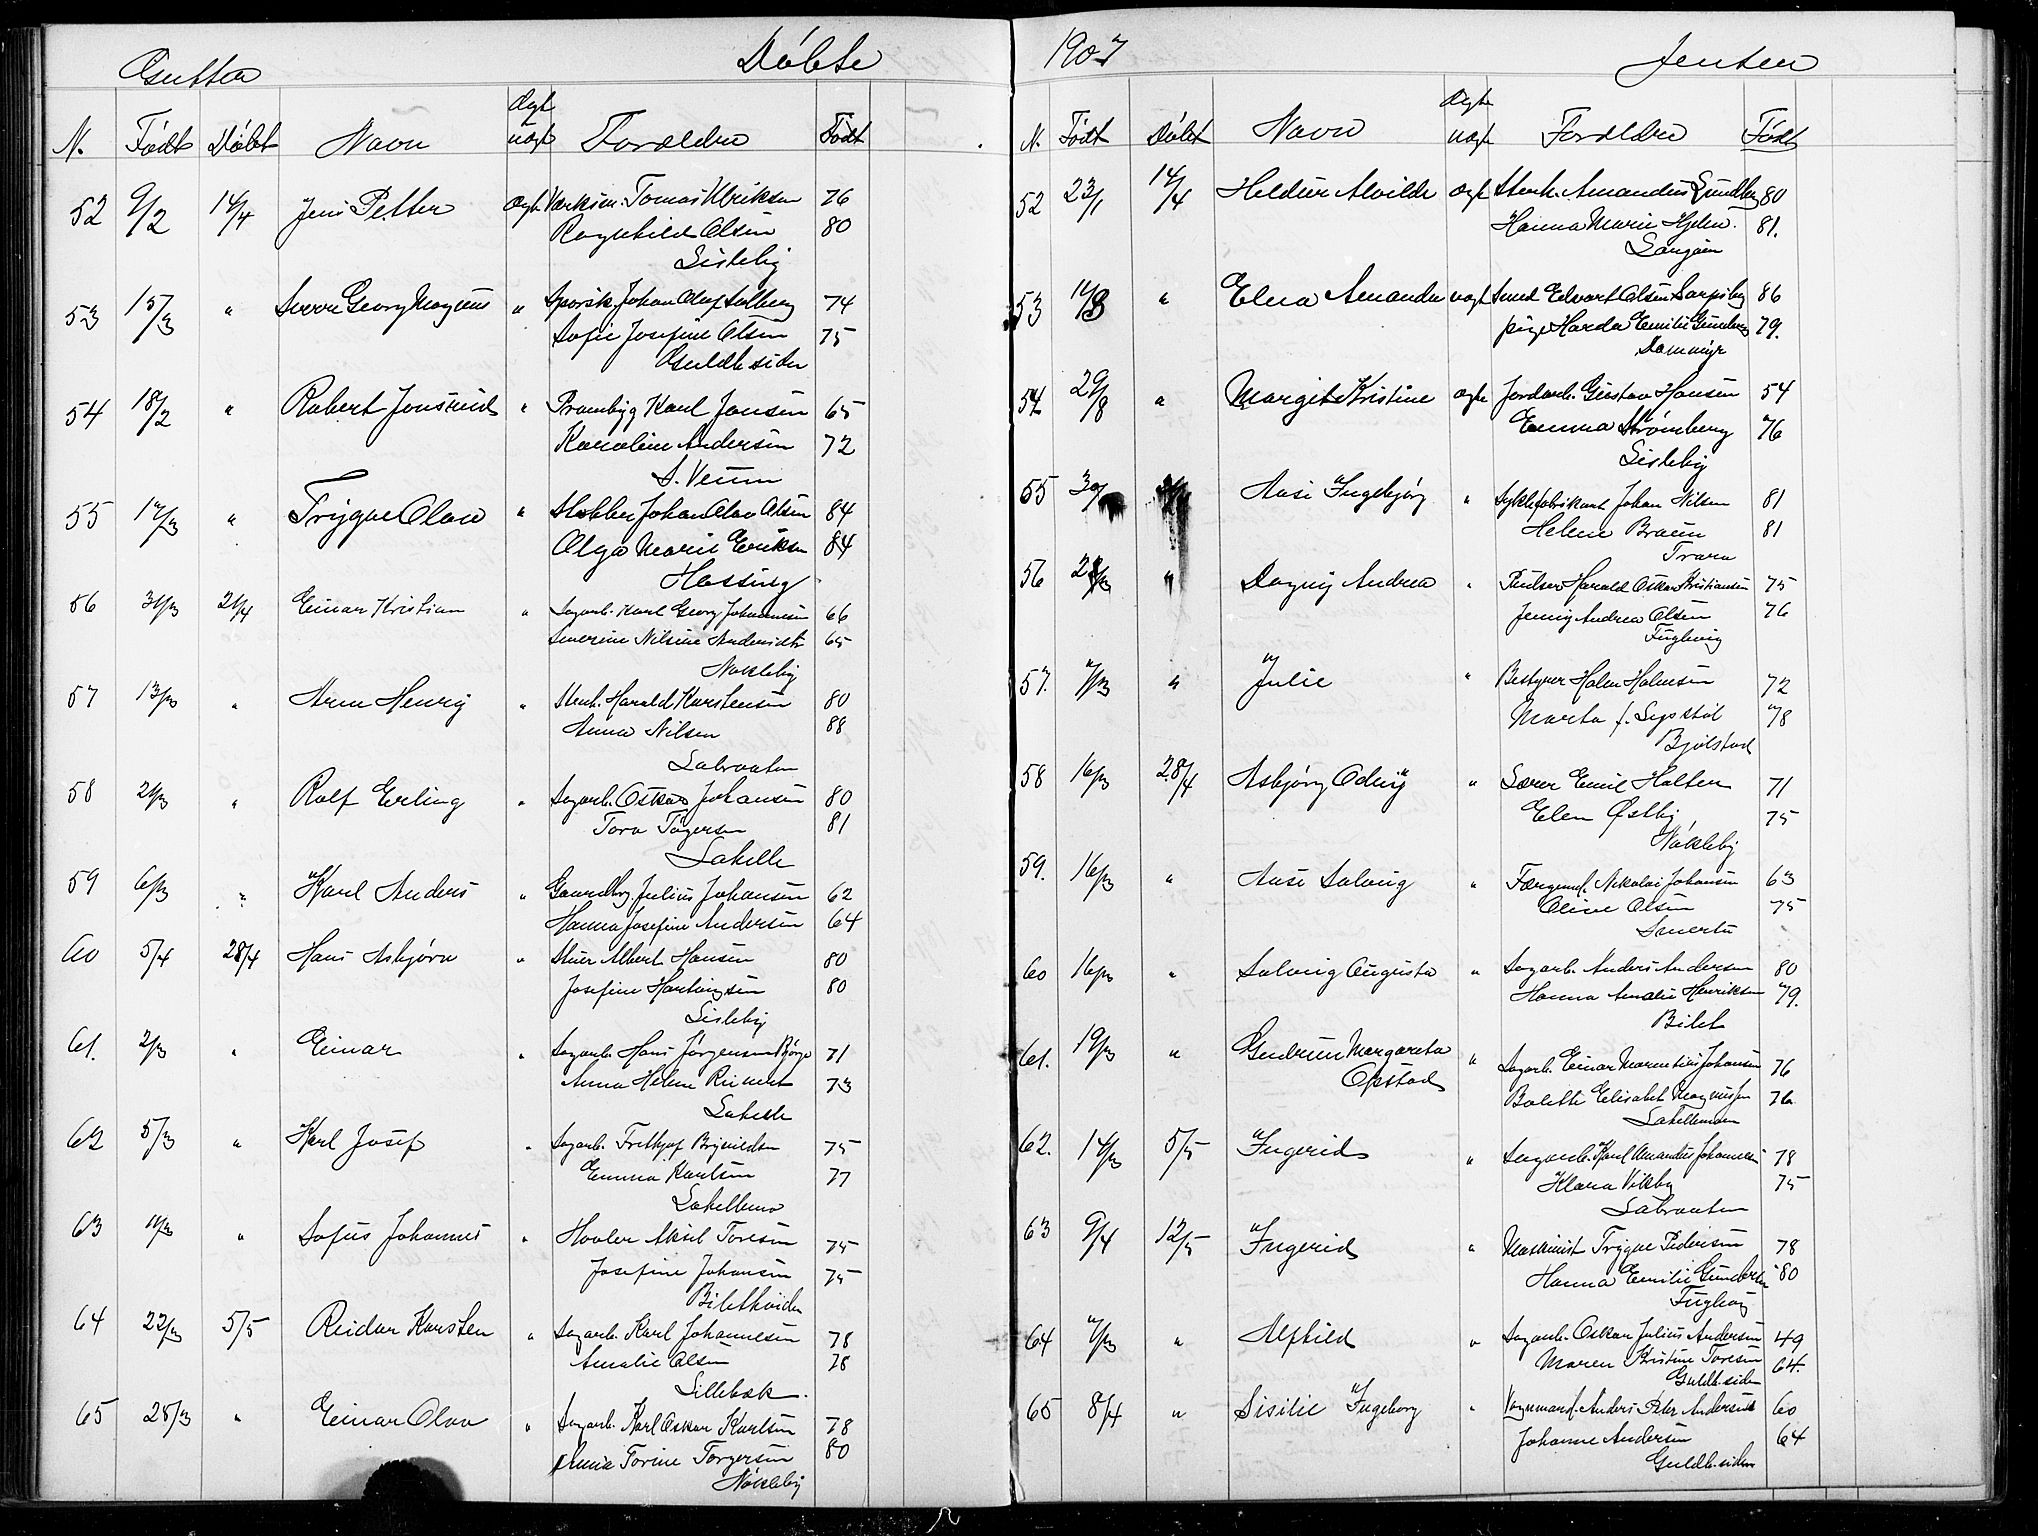 Døbte 1907
Gutter
N. Født Døbt Navn ægt uægt Forældre Født
52 9/2 14/4 Jens Petter ægt. Verksm. Tomas Ulriksen 76
Ragnhild Olsen 80
Lisleby
53 15/3 " Sverre Georg Magnus " Sporsk. Johan Olaf Solberg 74
Sofie Josefine Olsen 75
Guldb.siden
54 18/2 " Robert Jonsrud " Prambyg Karl Jensen 65
Karoline Andersen 72
S. Veum
55 17/3 " Trygve Olav " Stokker Johan Olav Olsen 84
Olga Marie Eriksen 84
Hassing
56 31/3 21/4 Einar Kristian " Sagarb. Karl Georg Johannesen 66
Severine Nilsine Andersdtr 65
Nøkleby
57 13/3 " Arne Henry " Stenh. Harald Karstensen 80
Anna Nilsen 88
Labraaten
58 21/3 " Rolf Erling " Sagarb. Oskar Johansen 80
Tora Tøgersen 81
Lahelle
59 6/3 " Karl Anders " Gaardbr. Julius Johansen 62
Hanna Josefine Andersen 64
60 5/4 28/4 Hans Asbjørn " Stuer Albert Hansen 80
Josefine Hartvigsen 80
Lisleby
61. 2/3 " Einar " Sagarb. Hans Jørgensen Bjørge 71
Anna Helene Reinert 73
Lahelle
62 5/3 " Karl Josef " Sagarb. Frithjof Brynildsen 75
Emma Karlsen 77
Lahellemo
63 11/3 " Sofus Johannes " Høvler Aksel Toresen 75
Josefine Johansen 75
Bilethøiden
64 22/3 5/5 Reidar Karsten " Sagarb. Karl Johannesen 78
Amalie Olsen 78
Lillebæk.
65 28/3 " Einar Olav " Sagarb. Karl Oskar Karlsen 78
Anna Torine Torgersen 80
Nøkleby
Jenter
N. Født Døbt Navn ægte uægte Forældre Født
52 23/1 14/4 Heldur Alvilde ægt Stenh. Amandus Lundberg 80
Hanna Marie Hjelm. 81.
Langøen
53 14/3 " Elna Amanda uægt Smed Edvart Olsen Sarpsbg 86
pige Harda Emilie Grimberg 79.
Dammyr
54 29/8 " Margit Kristine ægte Jordarb. Gustav Hansen 54
Emma Strømberg 76
Lisleby
55 30/ Aase Ingebjørg " Syklefabrikant Johan Nilsen 81
Helene Braun 81
Trara
56 28/3 " Dagny Andrea " Pudser Harald Oskar Kristiansen 75
Jenny Andrea Olsen 76
Fuglevig
57. 7/3 " Julie " Bestyrer Halvor Halvorsen 72
Marta f. Sysstøl 78
Bjølstad
58 16/3 28/4 Asbjørg Odny " Lærer Emil Holter 71
Elen Østby 75
Nøkleby
59. 16/3 " Aase Solveig " Færgemd. Nikolai Johansen 63
Oline Olsen 75
Smertu
60 16/3 " Solveig Augusta " Sagarb. Anders Andersen 80
Hanna Amalie Henriksen 79.
Bilet
61. 19/3 " Gudrun Margareta " Sagarb. Einar Marentius Johansen 76
Opstad
Bolette Elisabet Magnussen 76
Lahellemoen
62. 14/3 5/5 Ingerid " Sagarb. Karl Amandus Johannesen 78
Klara Vikby 75
Labraaten
63 9/4 12/5 Ingerid " Maskinist Trygve Pedersen 78
Hanna Emilie Gundersen 80
Fuglevig
64 7/3 " Alfhild " Sagarb. Oskar Julius Andersen 49
Maren Kristine Toresen 64.
Guldb.siden
65 8/4 " Sisilie Ingeborg " Vognmand. Anders Peter Andersen 60
Johanne Andersen 64
Guldb.siden